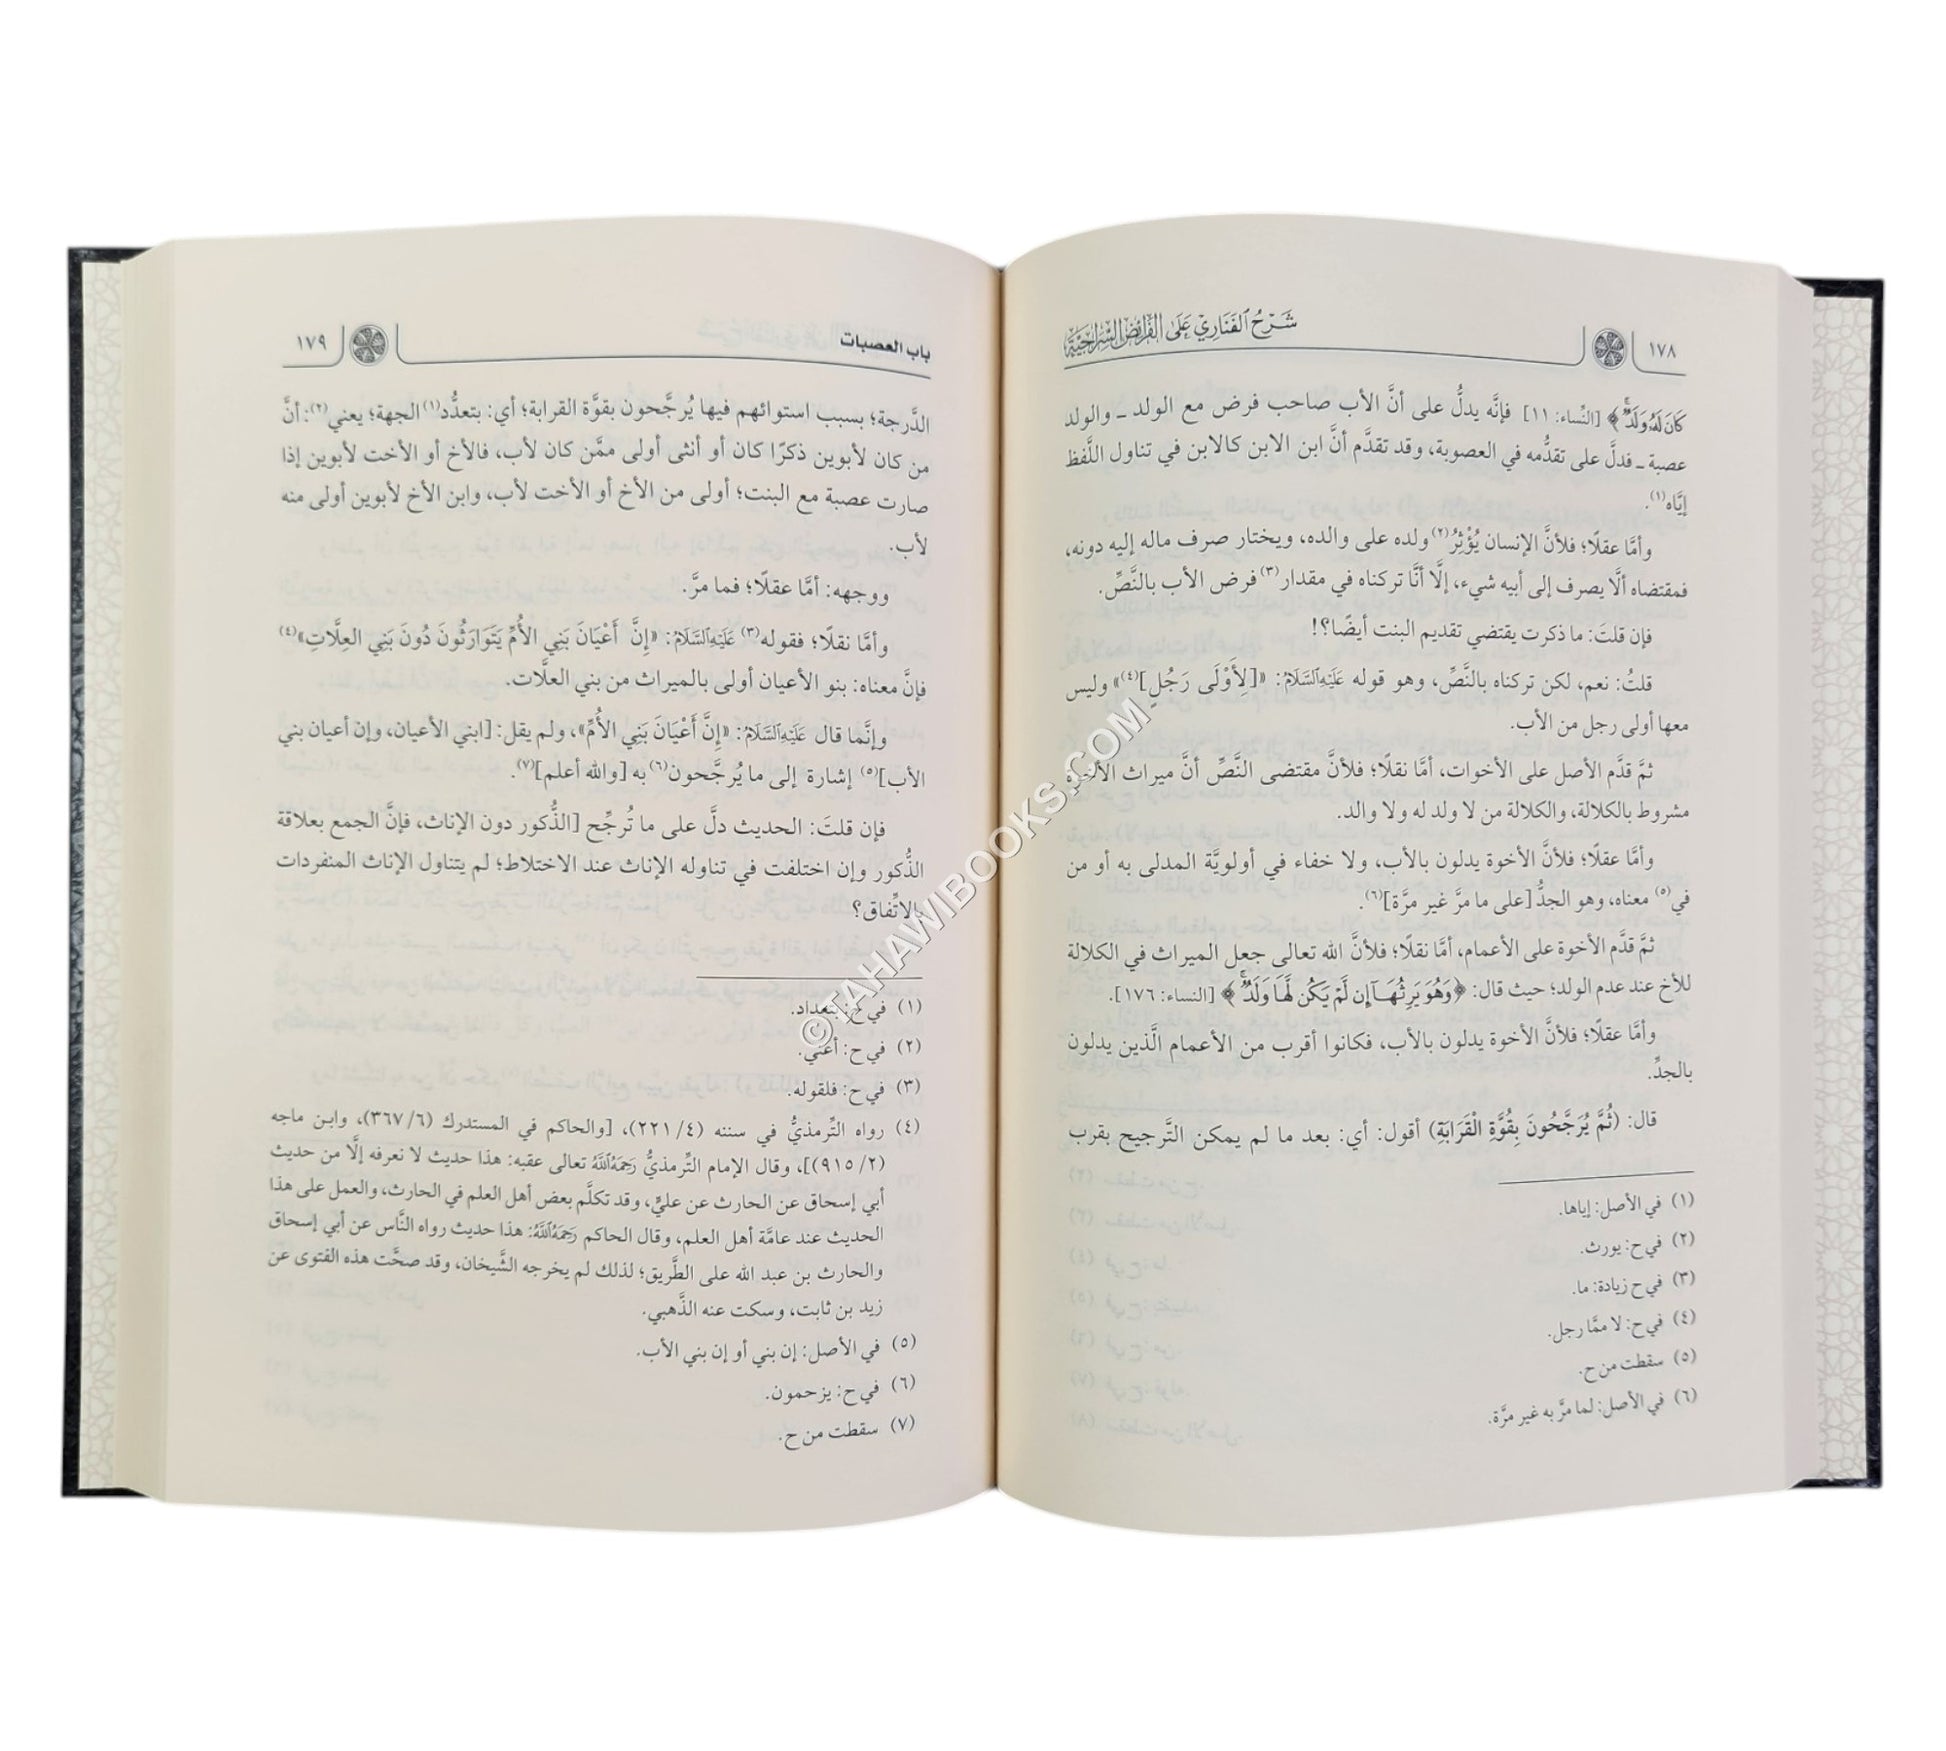 ١٧٨
شَرْحُ الفَنَارِي عَلَى الفَرَائِضِ السِّرَاجِيَّة
كَانَ لَهُۥ وَلَدٌۚ﴾ [النِّساء: ١١] فإنَّه يدلُّ على أنَّ الأب صاحب فرض مع الولد ـ والولد
عصبة ـ فدلَّ على تقدُّمه في العصوبة، وقد تقدَّم أنَّ ابن الابن كالابن في تناول اللَّفظ
إيَّاه(١).
وأمَّا عقلًا؛ فلأنَّ الإنسان يُؤْثِرُ(٢) ولده على والده، ويختار صرف ماله إليه دونه،
فمقتضاه ألَّا يصرف إلى أبيه شيء، إلَّا أنَّا تركناه في مقدار(٣) فرض الأب بالنَّصِّ.
فإن قلتَ: ما ذكرت يقتضي تقديم البنت أيضًا؟!
قلتُ: نعم، لكن تركناه بالنَّصِّ، وهو قوله عَلَيْهِ السَّلَامُ: «[لِأَوْلَى رَجُلٍ](٤)» وليس
معها أولى رجل من الأب.
ثمَّ قدَّم الأصل على الأخوات، أمَّا نقلًا؛ فلأنَّ مقتضى النَّصِّ أنَّ ميراث الأخوة
مشروط بالكلالة، والكلالة من لا ولد له ولا والد.
وأمَّا عقلًا؛ فلأنَّ الأخوة يدلون بالأب، ولا خفاء في أولويَّة المدلى به أو من
في(٥) معناه، وهو الجدُّ [على ما مرَّ غير مرَّة](٦).
ثمَّ قدَّم الأخوة على الأعمام، أمَّا نقلًا؛ فلأنَّ الله تعالى جعل الميراث في الكلالة
للأخ عند عدم الولد؛ حيث قال: ﴿وَهُوَ يَرِثُهَآ إِن لَّمْ يَكُن لَّهَا وَلَدٌۚ﴾ [النساء: ١٧٦].
وأمَّا عقلًا؛ فلأنَّ الأخوة يدلون بالأب، فكانوا أقرب من الأعمام الَّذين يدلون
بالجدِّ.
قال: (ثُمَّ يُرَجَّحُونَ بِقُوَّةِ الْقَرَابَةِ) أقول: أي: بعد ما لم يمكن التَّرجيح بقرب
(١) في الأصل: إياها.
(٢) في ح: يورث.
(٣) في ح زيادة: ما.
(٤) في ح: لا ممَّا رجل.
(٥) سقطت من ح.
(٦) في الأصل: لما مرَّ به غير مرَّة.
باب العصبات
١٧٩
الدَّرجة؛ بسبب استوائهم فيها يُرجَّحون بقوَّة القرابة؛ أي: بتعدُّد(١) الجهة؛ يعني(٢): أنَّ
من كان لأبوين ذكرًا كان أو أنثى أولى ممَّن كان لأب، فالأخ أو الأخت لأبوين إذا
صارت عصبة مع البنت؛ أولى من الأخ أو الأخت لأب، وابن الأخ لأبوين أولى منه
لأب.
ووجهه: أمَّا عقلًا؛ فما مرَّ.
وأمَّا نقلًا؛ فقوله(٣) عَلَيْهِ السَّلَامُ: «إِنَّ أَعْيَانَ بَنِي الأُمِّ يَتَوَارَثُونَ دُونَ بَنِي العِلَّاتِ»(٤)
فإنَّ معناه: بنو الأعيان أولى بالميراث من بني العلَّات.
وإنَّما قال عَلَيْهِ السَّلَامُ: «إِنَّ أَعْيَانَ بَنِي الأُمِّ»، ولم يقل: [ابني الأعيان، وإن أعيان بني
الأب](٥) إشارة إلى ما يُرجَّحون(٦) به [والله أعلم](٧).
فإن قلتَ: الحديث دلَّ على ما تُرجِّح [الذُّكور دون الإناث، فإنَّ الجمع بعلاقة
الذُّكور وإن اختلفت في تناوله الإناث عند الاختلاط؛ لم يتناول الإناث المنفردات
بالاتِّفاق؟
(١) في ح: بتعداد.
(٢) في ح: أعني.
(٣) في ح: فلقوله.
(٤) رواه التِّرمذيُّ في سننه (٤/ ٢٢١)، [والحاكم في المستدرك (٦/ ٣٦٧)، وابن ماجه
(٢/ ٩١٥)]، وقال الإمام التِّرمذيُّ رَحِمَهُ اللَّهُ تعالى عقبه: هذا حديث لا نعرفه إلَّا من حديث
أبي إسحاق عن الحارث عن عليٍّ، وقد تكلَّم بعض أهل العلم في الحارث، والعمل على هذا
الحديث عند عامَّة أهل العلم، وقال الحاكم رَحِمَهُ اللَّهُ: هذا حديث رواه النَّاس عن أبي إسحاق
والحارث بن عبد الله على الطَّريق؛ لذلك لم يخرجه الشَّيخان، وقد صحَّت هذه الفتوى عن
زيد بن ثابت، وسكت عنه الذَّهبي.
(٥) في الأصل: إن بني أو إن بني الأب.
(٦) في ح: يزحمون.
(٧) سقطت من ح.
©TAHAWIBOOKS.COM